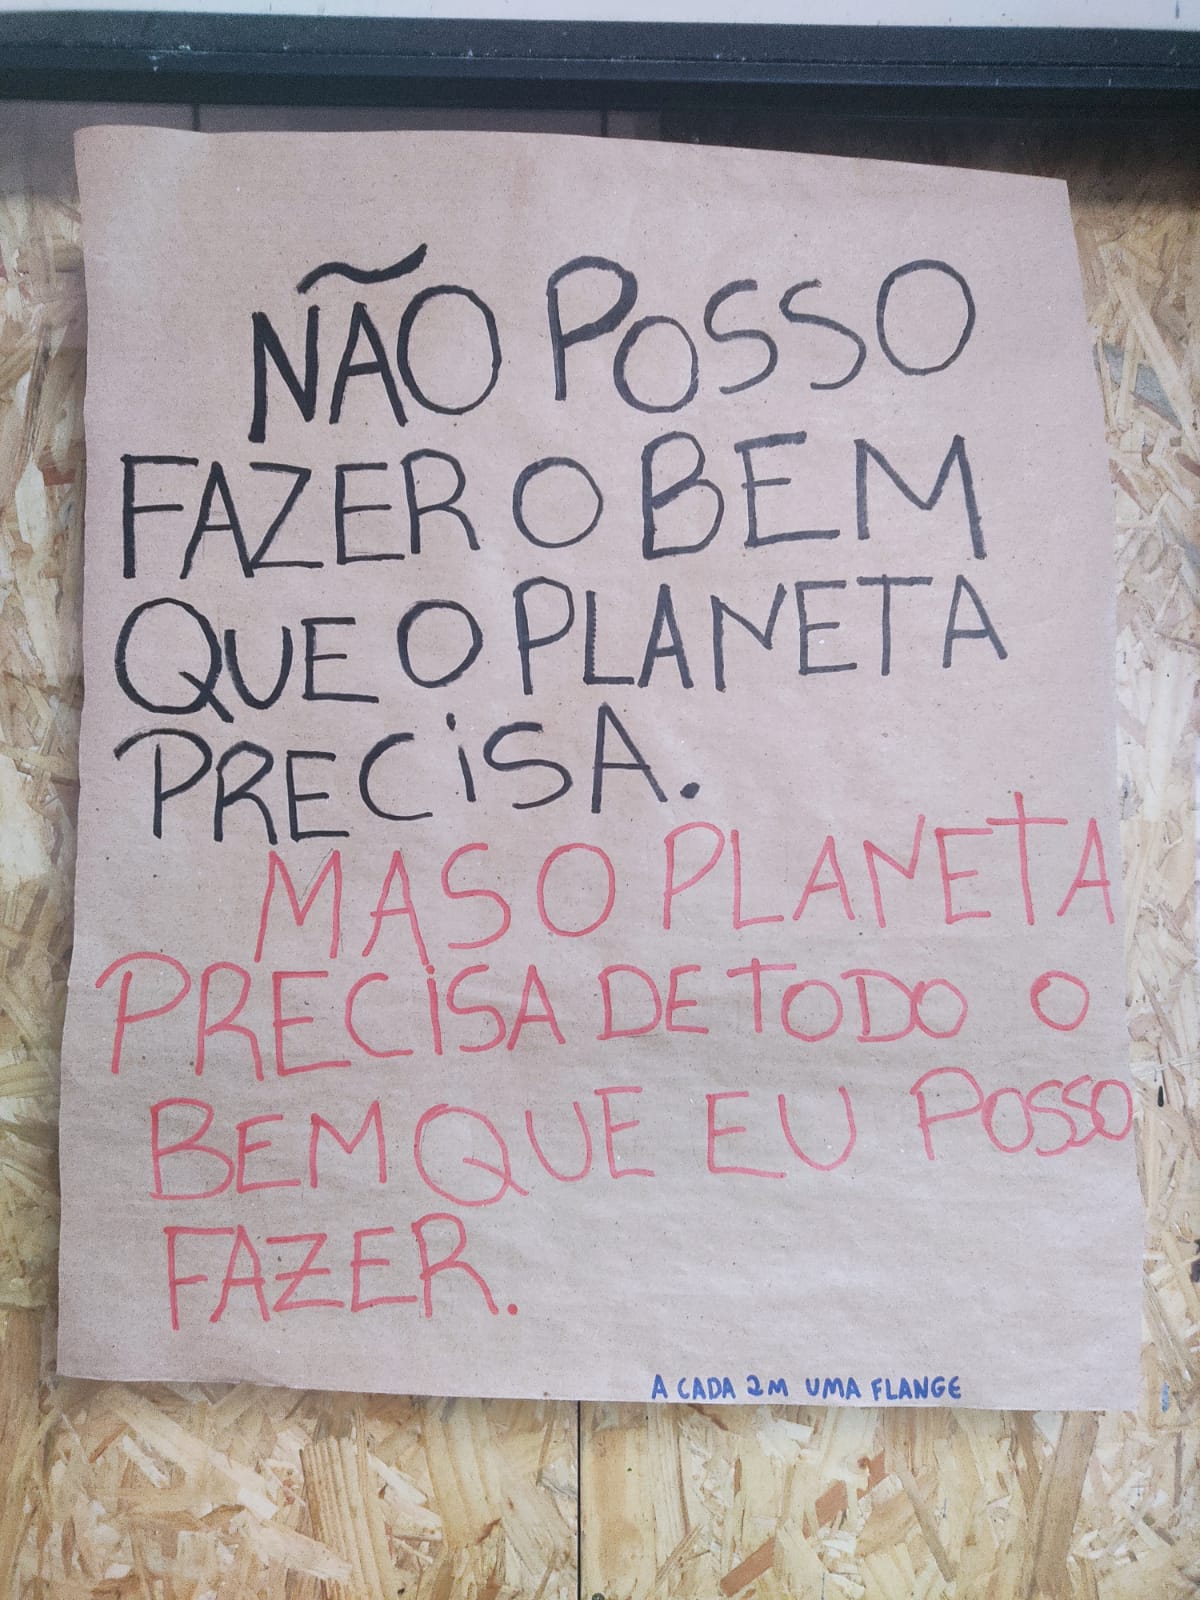 NÃO POSSO
FAZER O BEM
QUE O PLANETA
PRECiSA.
MAS O PLANETA
PRECiSA DE TODO O
BEM QUE EU POSSO
FAZER.
A CADA 2M UMA FLANGE